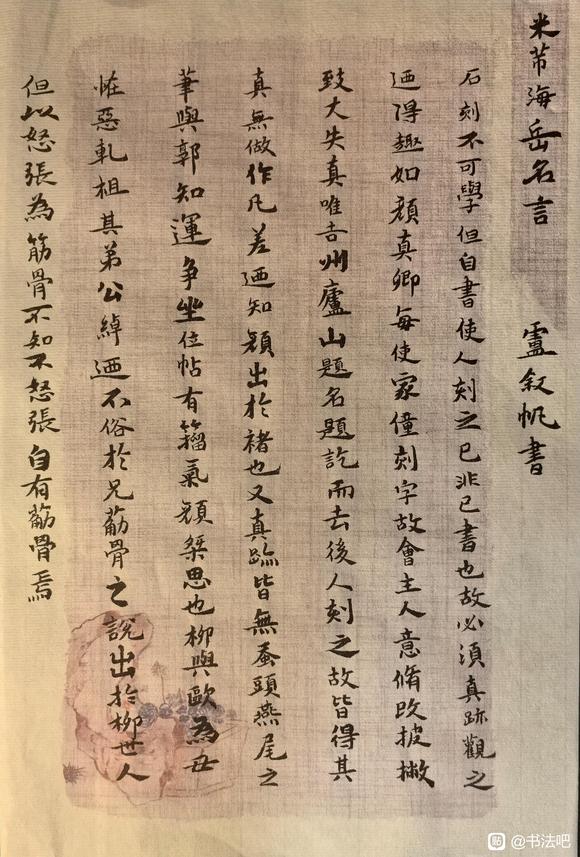 米芾海岳名言 盧叙帆書
石刻不可學但自書使人刻之已非己書也故必須真跡觀之
迺得趣如顔真卿每使家僮刻字故會主人意脩改披撇
致大失真唯吉州廬山題名題訖而去後人刻之故皆得其
真無做作凡差迺知顔出於褚也又真跡皆無蚕頭燕尾之
筆與郭知運爭坐位帖有籀氣顔傑思也柳與歐為丑
恠惡軋祖其弟公綽迺不俗於兄筋骨之說出於柳世人
但以怒張為筋骨不知不怒張自有筋骨焉
知 @书法吧